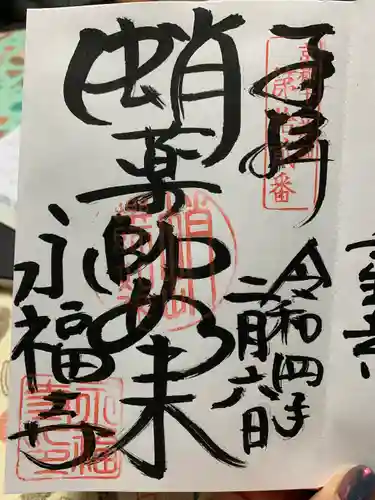 奉拝
令和四年
二月六日
蛸薬師如来
永福寺